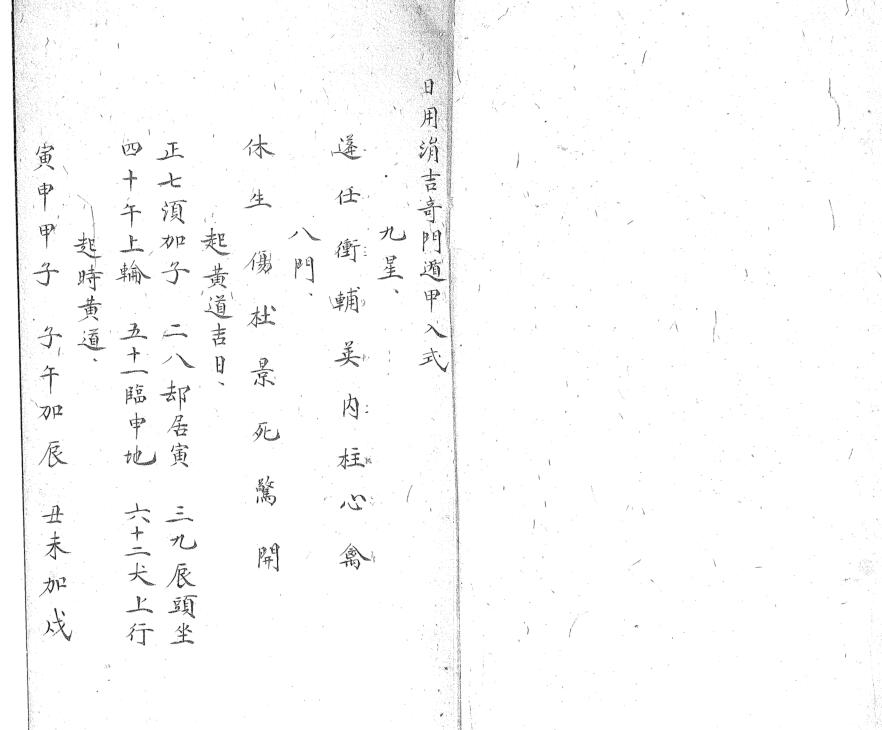 日用涓吉奇門遁甲入式
九星、
蓬任衝輔英内柱心禽
八門、
休生傷杜景死驚開
起黄道吉日、
正七湏加子 二八却居寅 三九辰頭坐
四十午上輪 五十一臨申地 六十二犬上行
起時黄道、
寅申甲子 子午加辰 丑未加戍